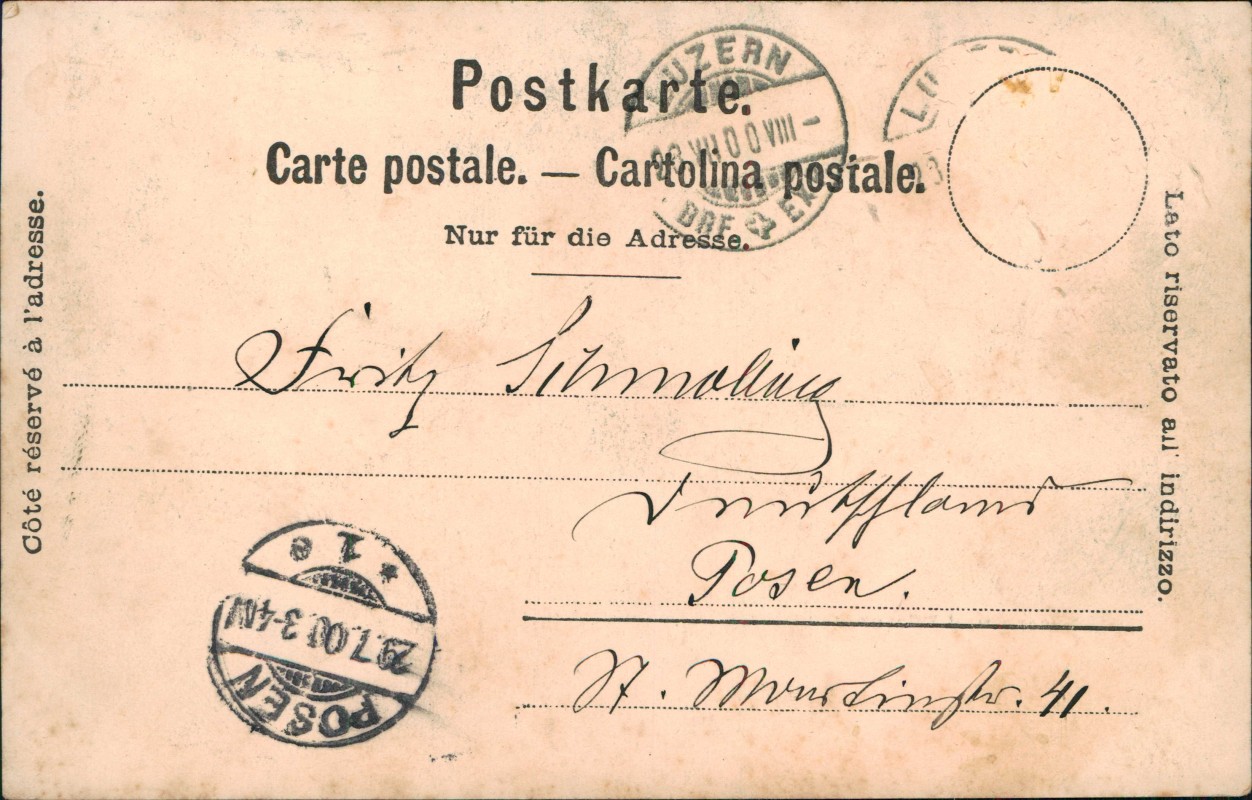 Postkarte.
Carte postale. — Cartolina postale.
Nur für die Adresse.
LUZERN
VII 00 VIII -
BRF EXP
LU
Côté réservé à l'adresse.
Lato riservato all' indirizzo.
Fritz Schmolling
Deutschland
Posen.
St. Martinstr. 41.
POSEN
29.7.00 3-4N
* 1 e